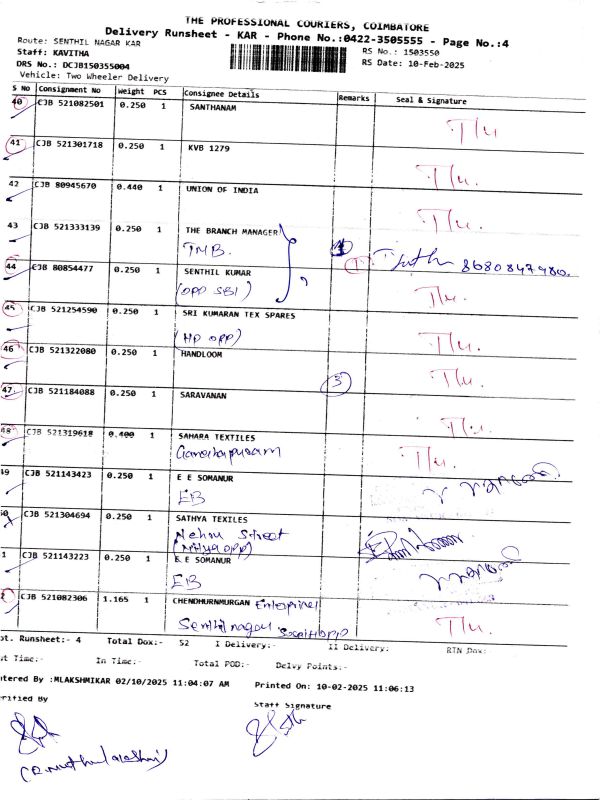 THE PROFESSIONAL COURIERS, COIMBATORE
Delivery Runsheet - KAR - Phone No.:0422-3505555 - Page No.:4
Route: SENTHIL NAGAR KAR
RS No.: 1503550
Staff: KAVITHA
RS Date: 10-Feb-2025
DRS No.: DCJB150355004
Vehicle: Two Wheeler Delivery
S No Consignment No Weight PCS Consignee Details Remarks Seal & Signature
40 CJB 521082501 0.250 1 SANTHANAM
41 CJB 521301718 0.250 1 KVB 1279
42 CJB 80945670 0.440 1 UNION OF INDIA
43 CJB 521333139 0.250 1 THE BRANCH MANAGER
TMB.
8680847980.
44 CJB 80854477 0.250 1 SENTHIL KUMAR
(OPP SBI)
45 CJB 521254590 0.250 1 SRI KUMARAN TEX SPARES
(HP OPP)
46 CJB 521322080 0.250 1 HANDLOOM
3
47 CJB 521184088 0.250 1 SARAVANAN
48 CJB 521319618 0.400 1 SAHARA TEXTILES
Ganathapuram
49 CJB 521143423 0.250 1 E E SOMANUR
EB
50 CJB 521304694 0.250 1 SATHYA TEXILES
Nehru Street
1 CJB 521143223 0.250 1 E E SOMANUR
EB
2 CJB 521082306 1.165 1 CHENDHURNMURGAN Enterprises
Senthilnagar
ot. Runsheet:- 4 Total Dox:- 52 I Delivery:- II Delivery: RTN Dox:
ut Time:- In Time:- Total POD:- Delvy Points:-
ntered By :MLAKSHMIKAR 02/10/2025 11:04:07 AM Printed On: 10-02-2025 11:06:13
erified By Staff Signature